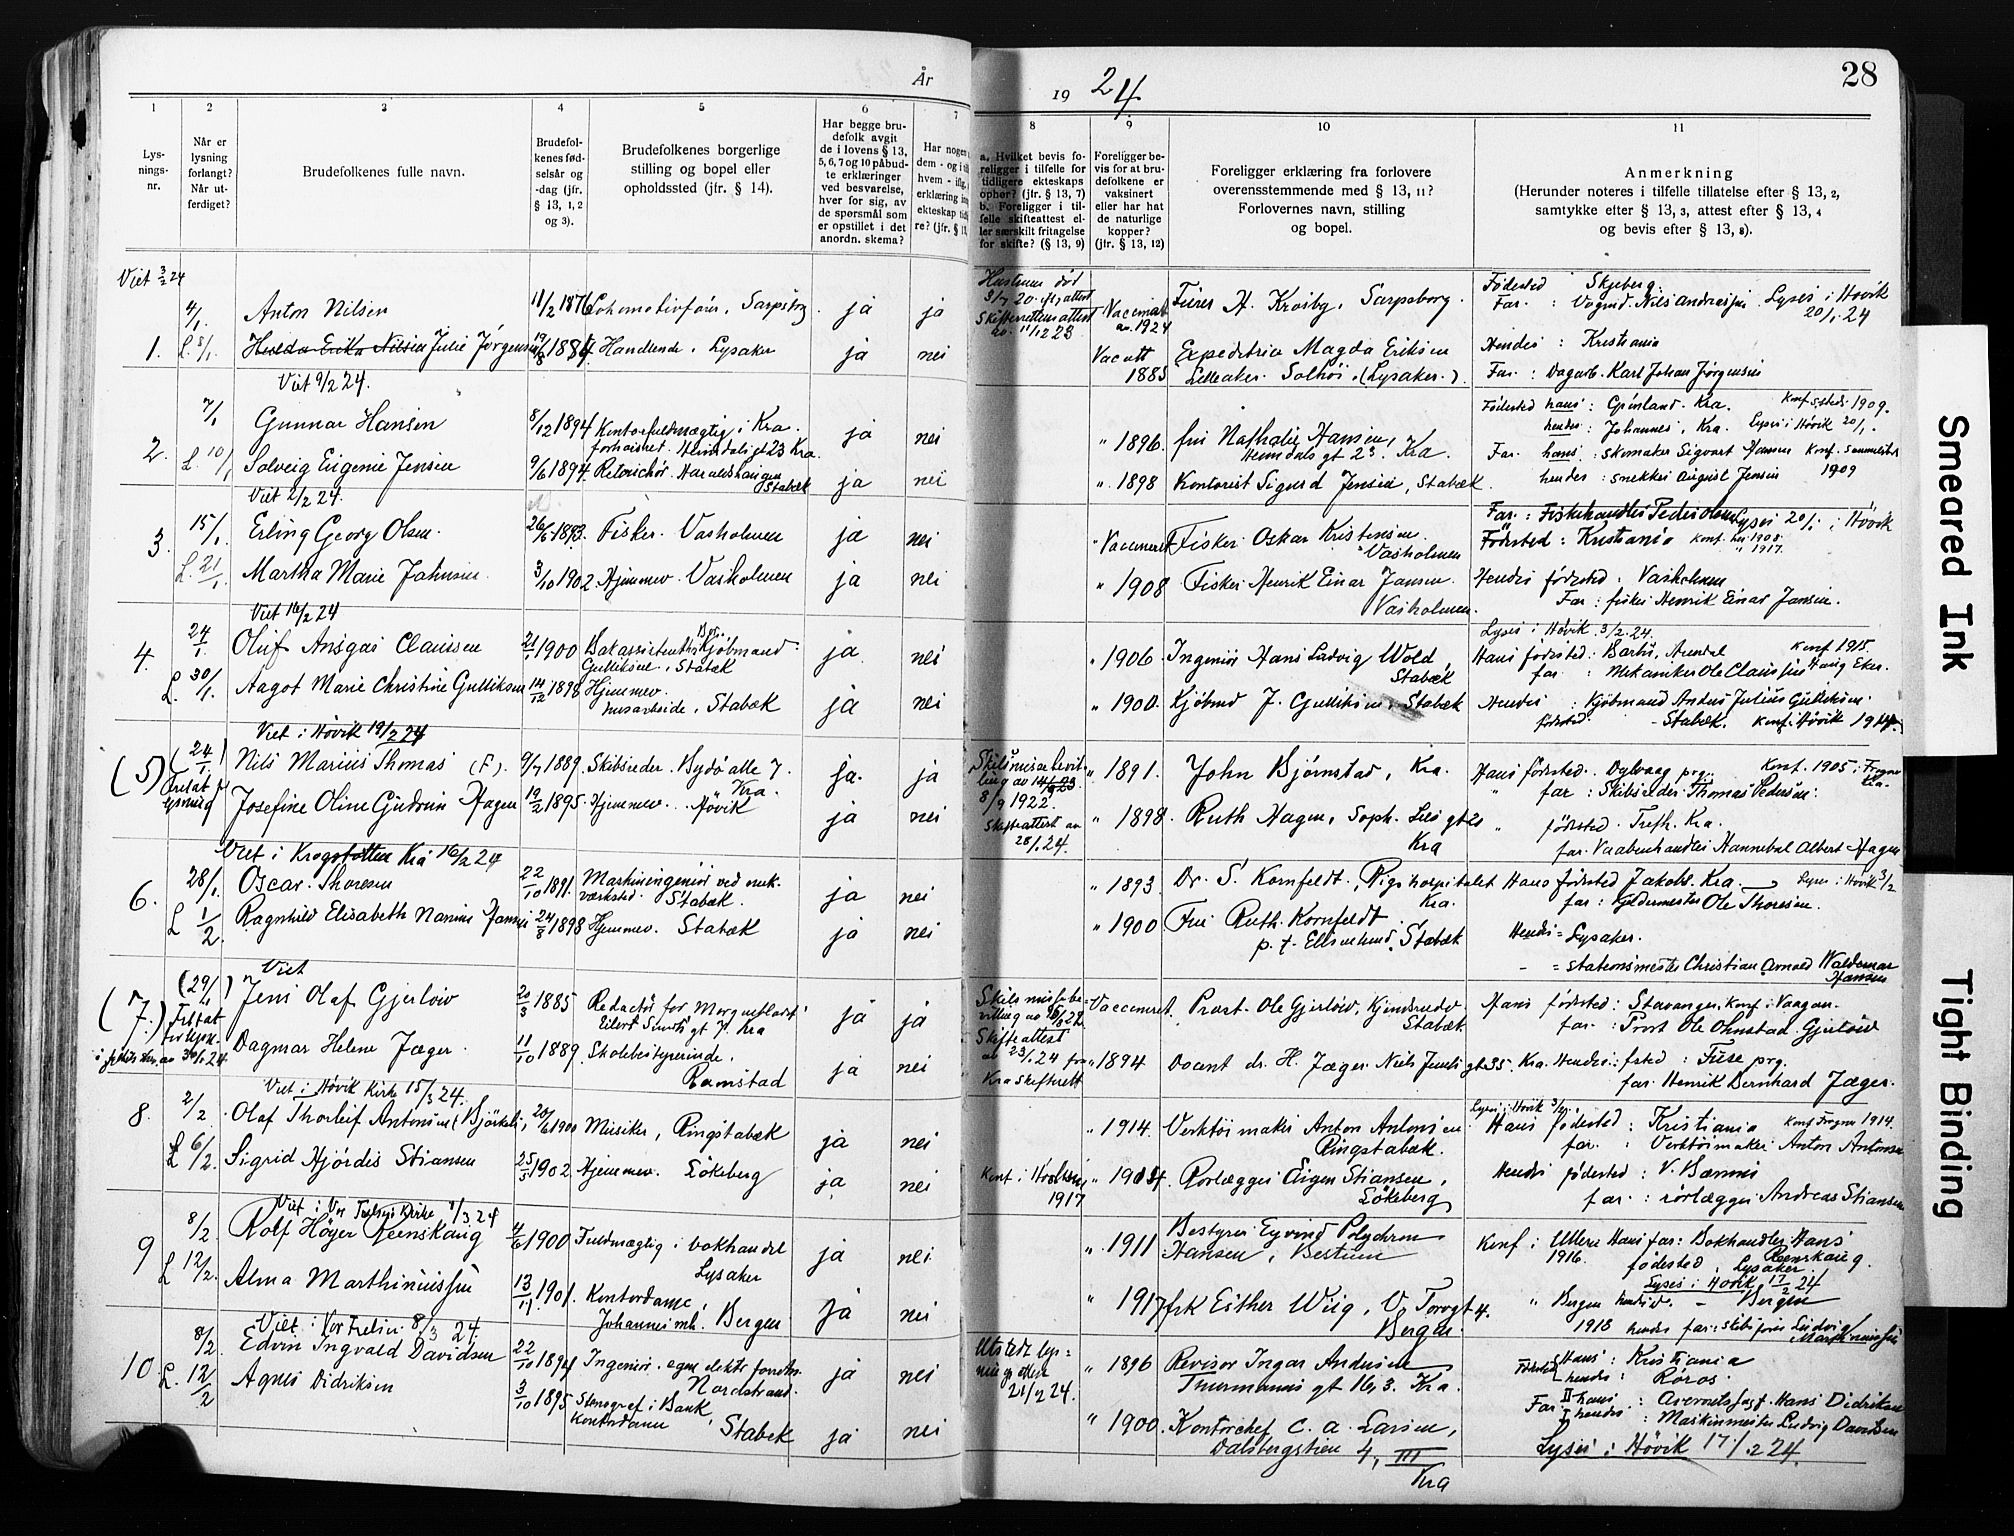 År
19 24
28
1
2
3
4
5
6
7
8
9
10
11
Lys-
nings-
nr.
Når er
lysning
forlangt?
Når ut-
ferdiget?
Brudefolkenes fulle navn.
Brudefol-
kenes fød-
selsår og
-dag (jfr.
§ 13, 1, 2
og 3).
Brudefolkenes borgerlige
stilling og bopel eller
opholdssted (jfr. § 14).
Har begge bru-
defolk avgit
de i lovens § 13,
5, 6, 7 og 10 påbud-
te erklæringer
ved besvarelse,
hver for sig, av
de spørsmål som
er opstillet i det
anordn. skema?
Har nogen
dem - og i
hvem - iflg.
erklæring in
ekteskap tid
re? (jfr. § 1
a. Hvilket bevis fo-
religger i tilfelle for
tidligere ekteskaps
ophør? (jfr. § 13, 7)
b. Foreligger i til-
felle skifteattest el-
ler særskilt fritagelse
for skifte? (§ 13, 9)
Foreligger be-
vis for at bru-
defolkene er
vaksinert
eller har hat
de naturlige
kopper?
(jfr. § 13, 12)
Foreligger erklæring fra forlovere
overensstemmende med § 13, 11?
Forlovernes navn, stilling
og bopel.
Anmerkning
(Herunder noteres i tilfelle tillatelse efter § 13, 2,
samtykke efter § 13, 3, attest efter § 13, 4
og bevis efter § 13, 8).
Viet 3/2 24
4/1. Anton Nilsen 11/2 1876 Lokomotivfører, Sarpsborg. ja ja
Hustruen død
Skifterettens attest
11/12 23
Vaccinert
av. 1924
Fører H. Krosby, Sarpsborg.
Fødested Skjeberg.
Far. : Vognmd. Nils Andreassen Lyses i Høvik
20/1. 24
1. L. 8/1 Hulda Erika Nilsen Julie Jørgensen 19/8 1884 Handlende, Lysaker ja nei
Vacatt
1885
Expeditrice Magda Eriksen
Lilleaker. Solhøi. (Lysaker.)
Hendes : Kristiania
Far. : Dagarb. Karl Johan Jørgensen
Viet 9/2 24.
2. 7/1 Gunnar Hansen 8/12 1894 Kontorfuldmægtig i Kra.
Heimdals gt 23 Kra. ja nei
" 1896. fru Nathalie Hansen,
Heimdals gt 23. Kra.
Fødested hans : Grønland. Kra. Konf. sstedes 1909.
hendes : Johannes, Kra. Lyses i Høvik 20/1.
L. 10/1 Solveig Eugenie Jensen 9/6 1894. Retouchør. Haraldshaugen
Stabæk ja nei
" 1898 Kontorist Sigurd Jensen, Stabæk.
Far. hans : skomaker Sigvart Hansen Konf. sammested
hendes : snekker August Jensen 1909
Viet 2/2 24.
3. 15/1. Erling Georg Olsen. 26/5 1893. Fisker. Vasholmen ja nei
" Vaccineret Fisker Oskar Kristensen.
Vasholmen
Far. : Fiskehandler Peder Olsen Lyses 20/1. i Høvik
Fødested : Kristiania Konf. hr. 1908.
" 1917.
L. 21/1. Martha Marie Johnsen. 3/10 1902. Hjemmev. Vasholmen ja nei
" 1908 Fisker Henrik Einar Jansen.
Vasholmen.
Hendes fødested. Vasholmen
Far : fisker Henrik Einar Jansen.
Viet 16/2 24
4. 24/1. Oluf Ansgar Claussen 21/1 1900 Kjøbmand
Gulliksen, Stabæk ja. nei
" 1906. Ingeniør Hans Ludvig Wold,
Stabæk
Lyses i Høvik 3/2. 24.
Hans fødested : Barbu, Arendal Konf 1915.
far : Mekaniker Ole Claussen
L. 30/1. Aagot Marie Christine Gulliksen 14/12 1898 Hjemmev.
husarbeide, Stabæk ja nei
" 1900. Kjøbmd J. Gulliksen, Stabæk
Hendes : Kjøbmand Anders Julius Gulliksen.
fødested. - Stabæk. Konf. Høvik 1914.
Viet i Høvik 19/2 24
(5) (24/1.) Nils Marius Thomas (F). 9/7 1889. Skibsreder. Bygdø alle 7.
Kra. ja. ja
Skilsmissebevil-
ling av
8/9 1922.
Skifteattest av
28/1. 24.
" 1891. John Bjørnstad, Kra.
Hans fødested. Dybvaag prg. Konf. 1905 i Frogner
Kra.
far : Skibsreder Thomas Pedersen.
Josefine Oline Gudrun Hagen 19/2 1895. Hjemmev. Høvik ja nei
" 1898. Ruth Hagen, Soph. Lies gt 20
Kra
fødested. Trefh. Kra.
far. Vaabenhandler Hannibal Albert Hagen
Viet i Krogstøtten Kra 16/2 24
6. 28/1. Oscar Thoresen 22/10 1891. Maskiningeniør ved mek.
værksted. Stabæk. ja nei
" 1893. Dr. S. Kornfeldt, Rigshospitalet
Kra.
Hans fødested Jakobs. Kra. Lyses i Høvik 3/2
far : Kjeldermester Ole Thoresen.
L 1/2. Ragnhild Elisabeth Nanna Hansen 24/8 1898 Hjemmev. Stabæk ja nei
" 1900 Fru Ruth Kornfeldt
p. t. Ellinelund, Stabæk
Hendes = Lysaker.
- = Stationsmester Christian Arnold Waldemar
Hansen
Viet
(7.) (29/1) Jens Olaf Gjerløw 20/3 1885 Redaktør for Morgenbladet
Eilert Sundts gt 7. Kra ja ja
Skilsmissebe-
Skifteattest
av 23/1. 24 fra
Kra skifterett
Vaccineret. Prost. Ole Gjerløw, Kjendsrudv
Stabæk
Hans fødested : Stavanger, Konf. i Vaagan.
far. : Prost Ole Ohnstad Gjerløw
Dagmar Helene Jæger. 11/10 1889. Skolebestyrerinde,
Ramstad ja nei
" 1894 Docent dr. H. Jæger. Niels Juels gt 35. Kra.
Hendes : fsted : Fuse prg.
far. Henrik Bernhard Jæger.
Viet i Høvik Kirke 15/3 24.
8. 2/2 Olaf Thorleif Antonsen (Bjørkeli, 20/6 1900 Musiker, Ringstabæk ja nei
" 1914. Verktøimaker Anton Antonsen.
Ringstabæk.
Lyses i Høvik 3/2,
Hans fødested : Kristiania Konf Frogner 1914.
far. : Verktøimaker Anton Antonsen
L 6/2. Sigrid Hjørdis Stiansen 25/5 1902. Hjemmev. Løkeberg ja nei
1917
" 1904. Rørlægger Eigen Stiansen,
Løkeberg
Hendes fødested : V. Bærum
far. : rørlægger Andreas Stiansen
Viet i Vor Frelsers Kirke 7/3 24
9 8/2. Rolf Høyer Reenskaug 4/6 1900 Fuldmægtig i bokhandel
Lysaker ja nei
" 1911 Bestyrer Eyvind Polychron
Hansen, Bestum
Konf i Ullern Hans far : Bokhandler Hans
1916. Reenskaug.
fødested, Lysaker
Lyses i Høvik 17/2 24
L 12/2. Alma Marthinussen 13/11 1901. Kontordame,
Johannes mh. Bergen ja nei
" 1917 frk Esther Wiig, V. Torvgt 4.
Bergen.
" Bergen hendes. - Bergen
1918 hendes far : skibsfører Ludvig
Marthinussen
Viet i Vor Frelser. 8/3 24.
10 8/2. Edvin Ingvald Davidsen 22/10 1894 Ingeniør. egen elektr forretn.
Nordstrand. ja nei
Utstedt lys=
ning
21/2 24.
" 1896 Revisor Ingar Andersen
Thurmanns gt 16, 3. Kra.
Fødested Hans : Kristiania
hendes : Røros.
L. 12/2 Agnes Didriksen 3/10 1895 Stenograf i Bank
kontordame, Stabek ja nei
" 1900. Kontorchef C. A. Larsen,
Dalsbergstien 4, III
Kra
Far II hans : Overrettssagf. Hans Didriksen
I hendes : Maskinmester Ludvig Davidsen
Lyses i Høvik 17/2 24.
Smeared Ink
Tight Binding